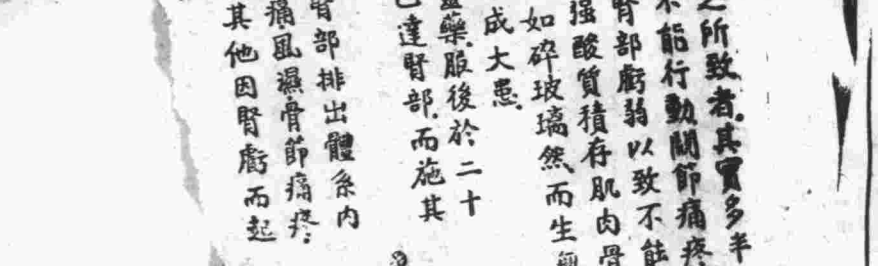 之所致者。其實多半
不能行動關節痛疼
腎部虧弱以致不能
强酸質積存肌肉骨
如碎玻璃然、而生
成大患。
藥。服後於二十
已達腎部、而施其
腎部排出體系內
痛、風濕、骨節痛疼、
其他因腎虧而起